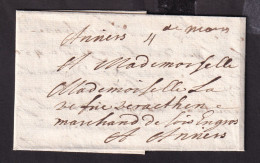 Anvers 4 de mars
A Mademoiselle
Mademoiselle La
vefue
marchand de soie Engros
A Anvers